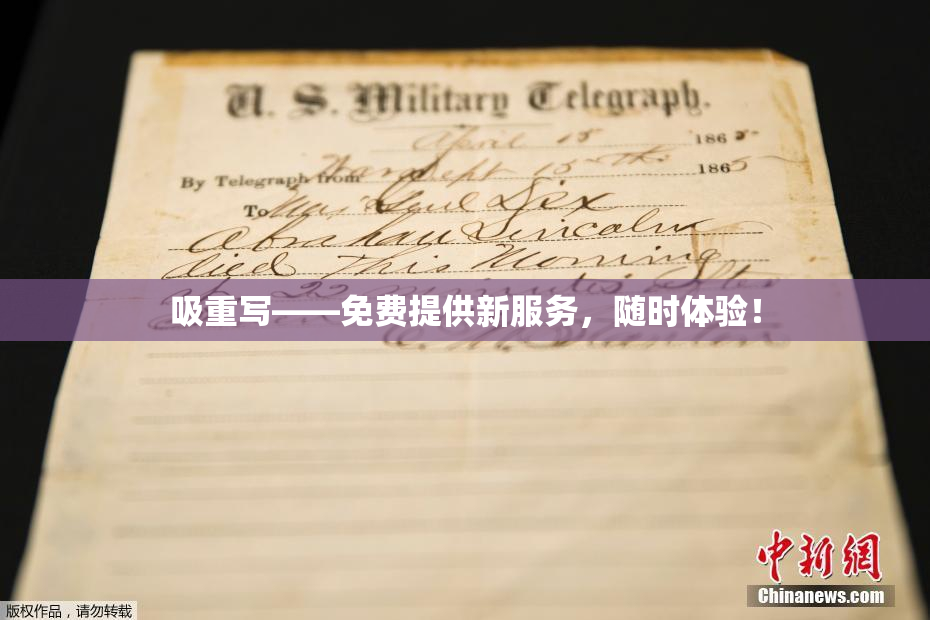 U. S. Military Telegraph.
April 15 1865
By Telegraph from War Dept 15th 1865
To Maj Genl Dix
Abraham Lincoln
died This Morning
at 22 minutes after
吸重写——免费提供新服务，随时体验！
E. M. Stanton
中新网
Chinanews.com
版权作品，请勿转载